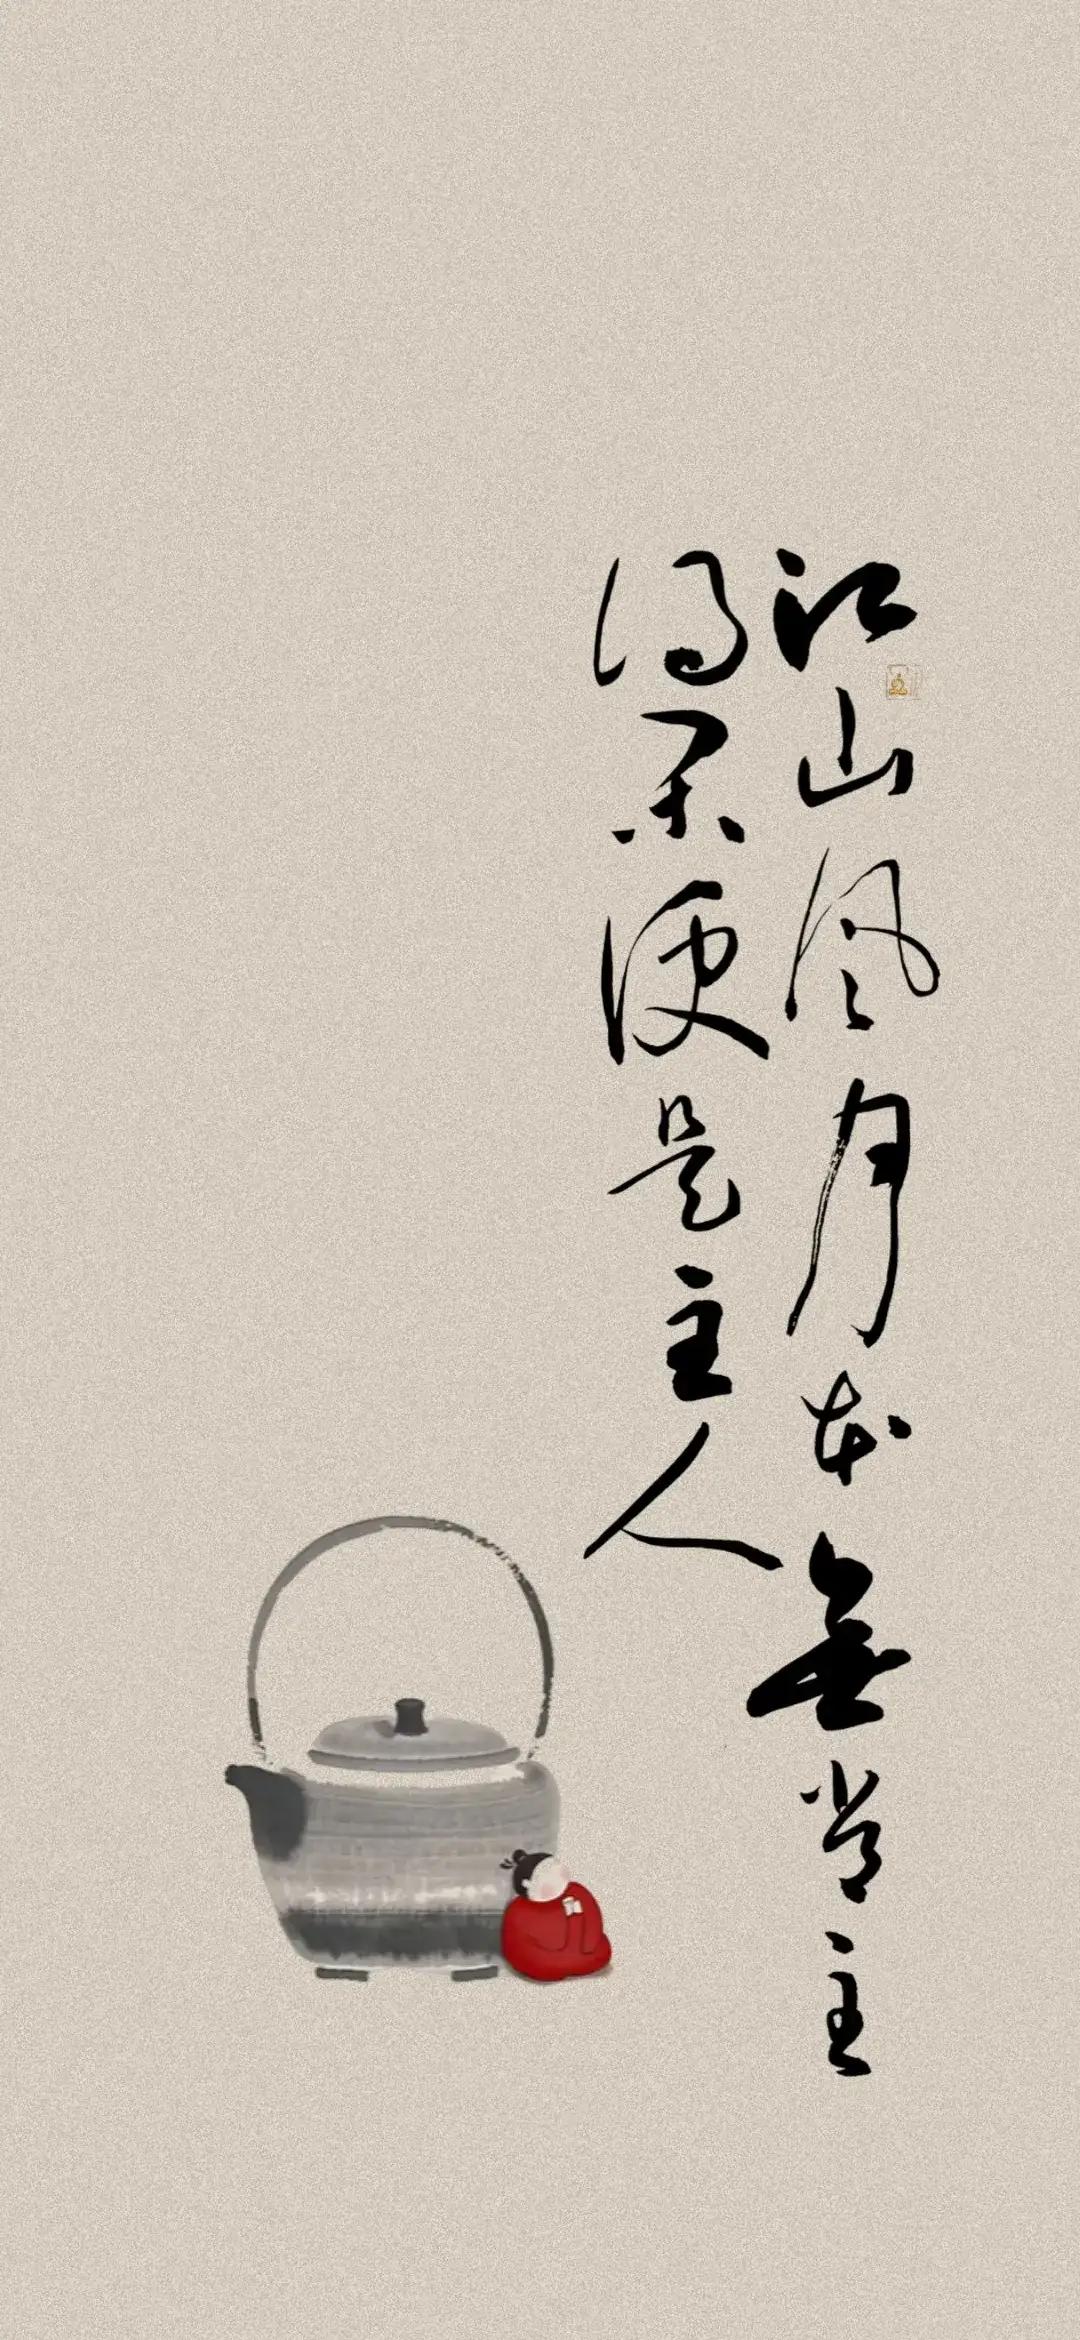 江山风月本無常主
得闲便是主人